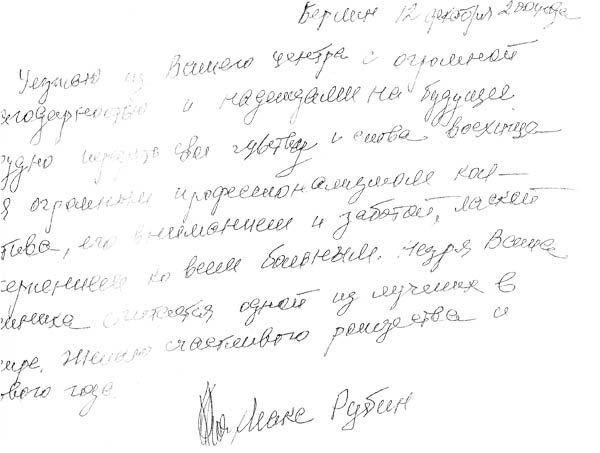 Берлин 12 декабря 2004года
Уезжаю из Вашего центра с огромной
агодарностью и надеждами на будущее
рудно выразить свои чувства и слова восхище
я огромным профессионализмом кол-
тива, его вниманием и заботой, лаской
терпением ко всем больным. Недря Ваша
линика считается одной из лучших в
мире. Желаю счастливого рождества и
ового года.
Макс Рубин